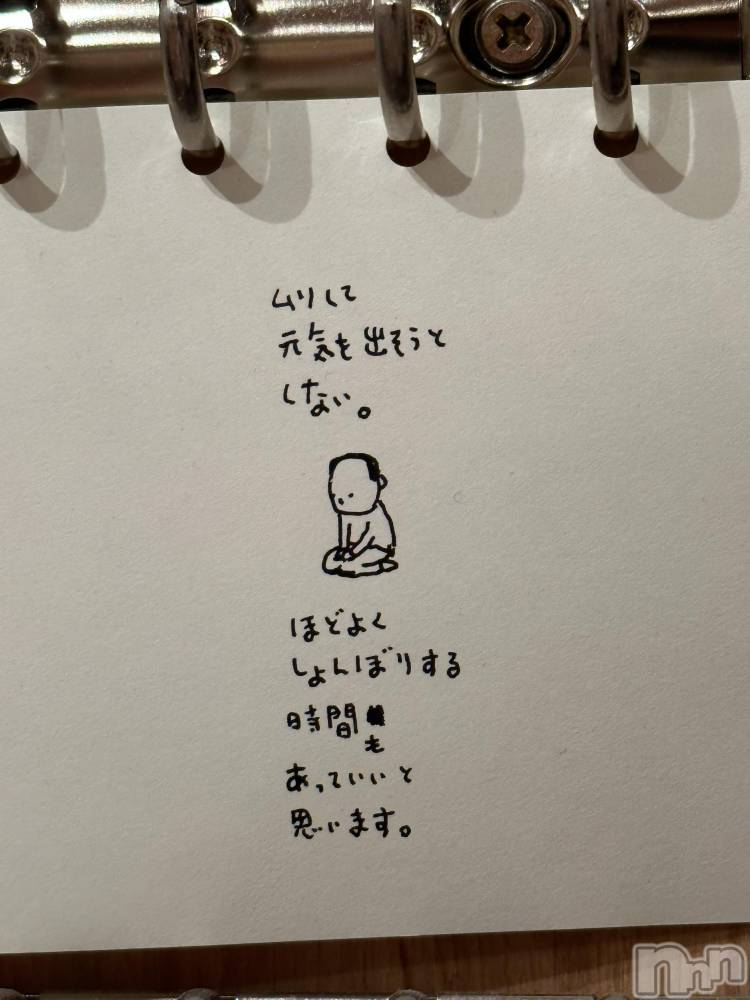 ムリして
元気を出そうと
しない。
ほどよく
しょんぼりする
時間も
あっていいと
思います。
nnn